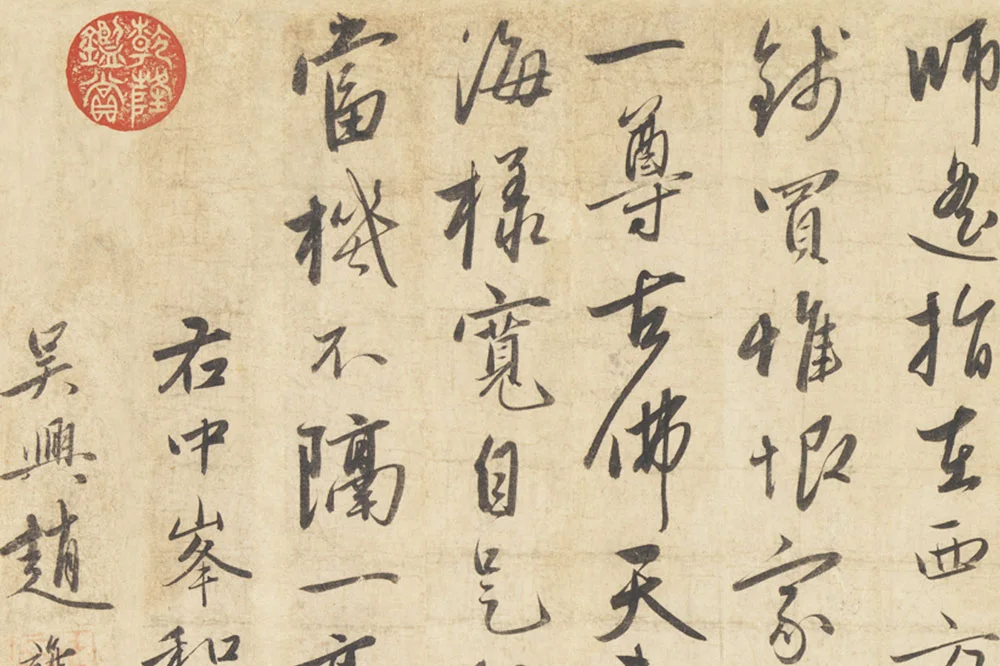 師遙指在西方
錢買惟恨家
一尊古佛天
海樣寬自是
當機不隔一
右中峯和
吳興趙
乾隆鑑賞